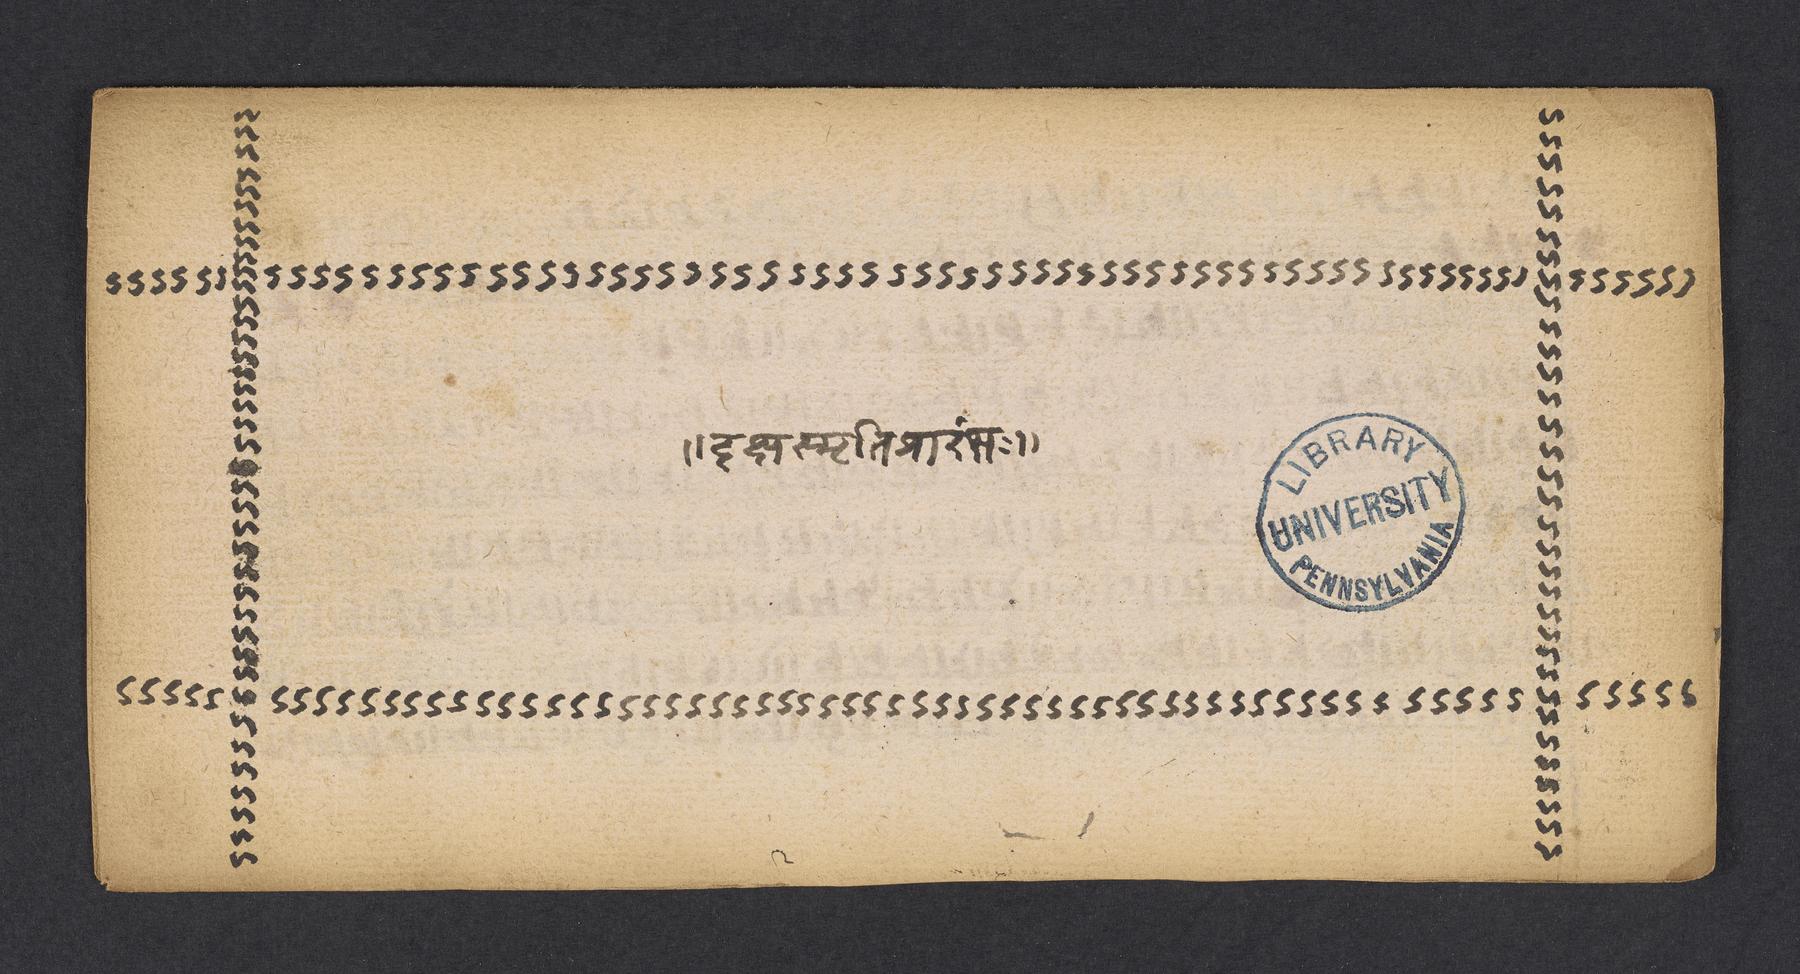 ॥दृक्षस्मृतिप्रारंभः॥
LIBRARY
UNIVERSITY
PENNSYLVANIA